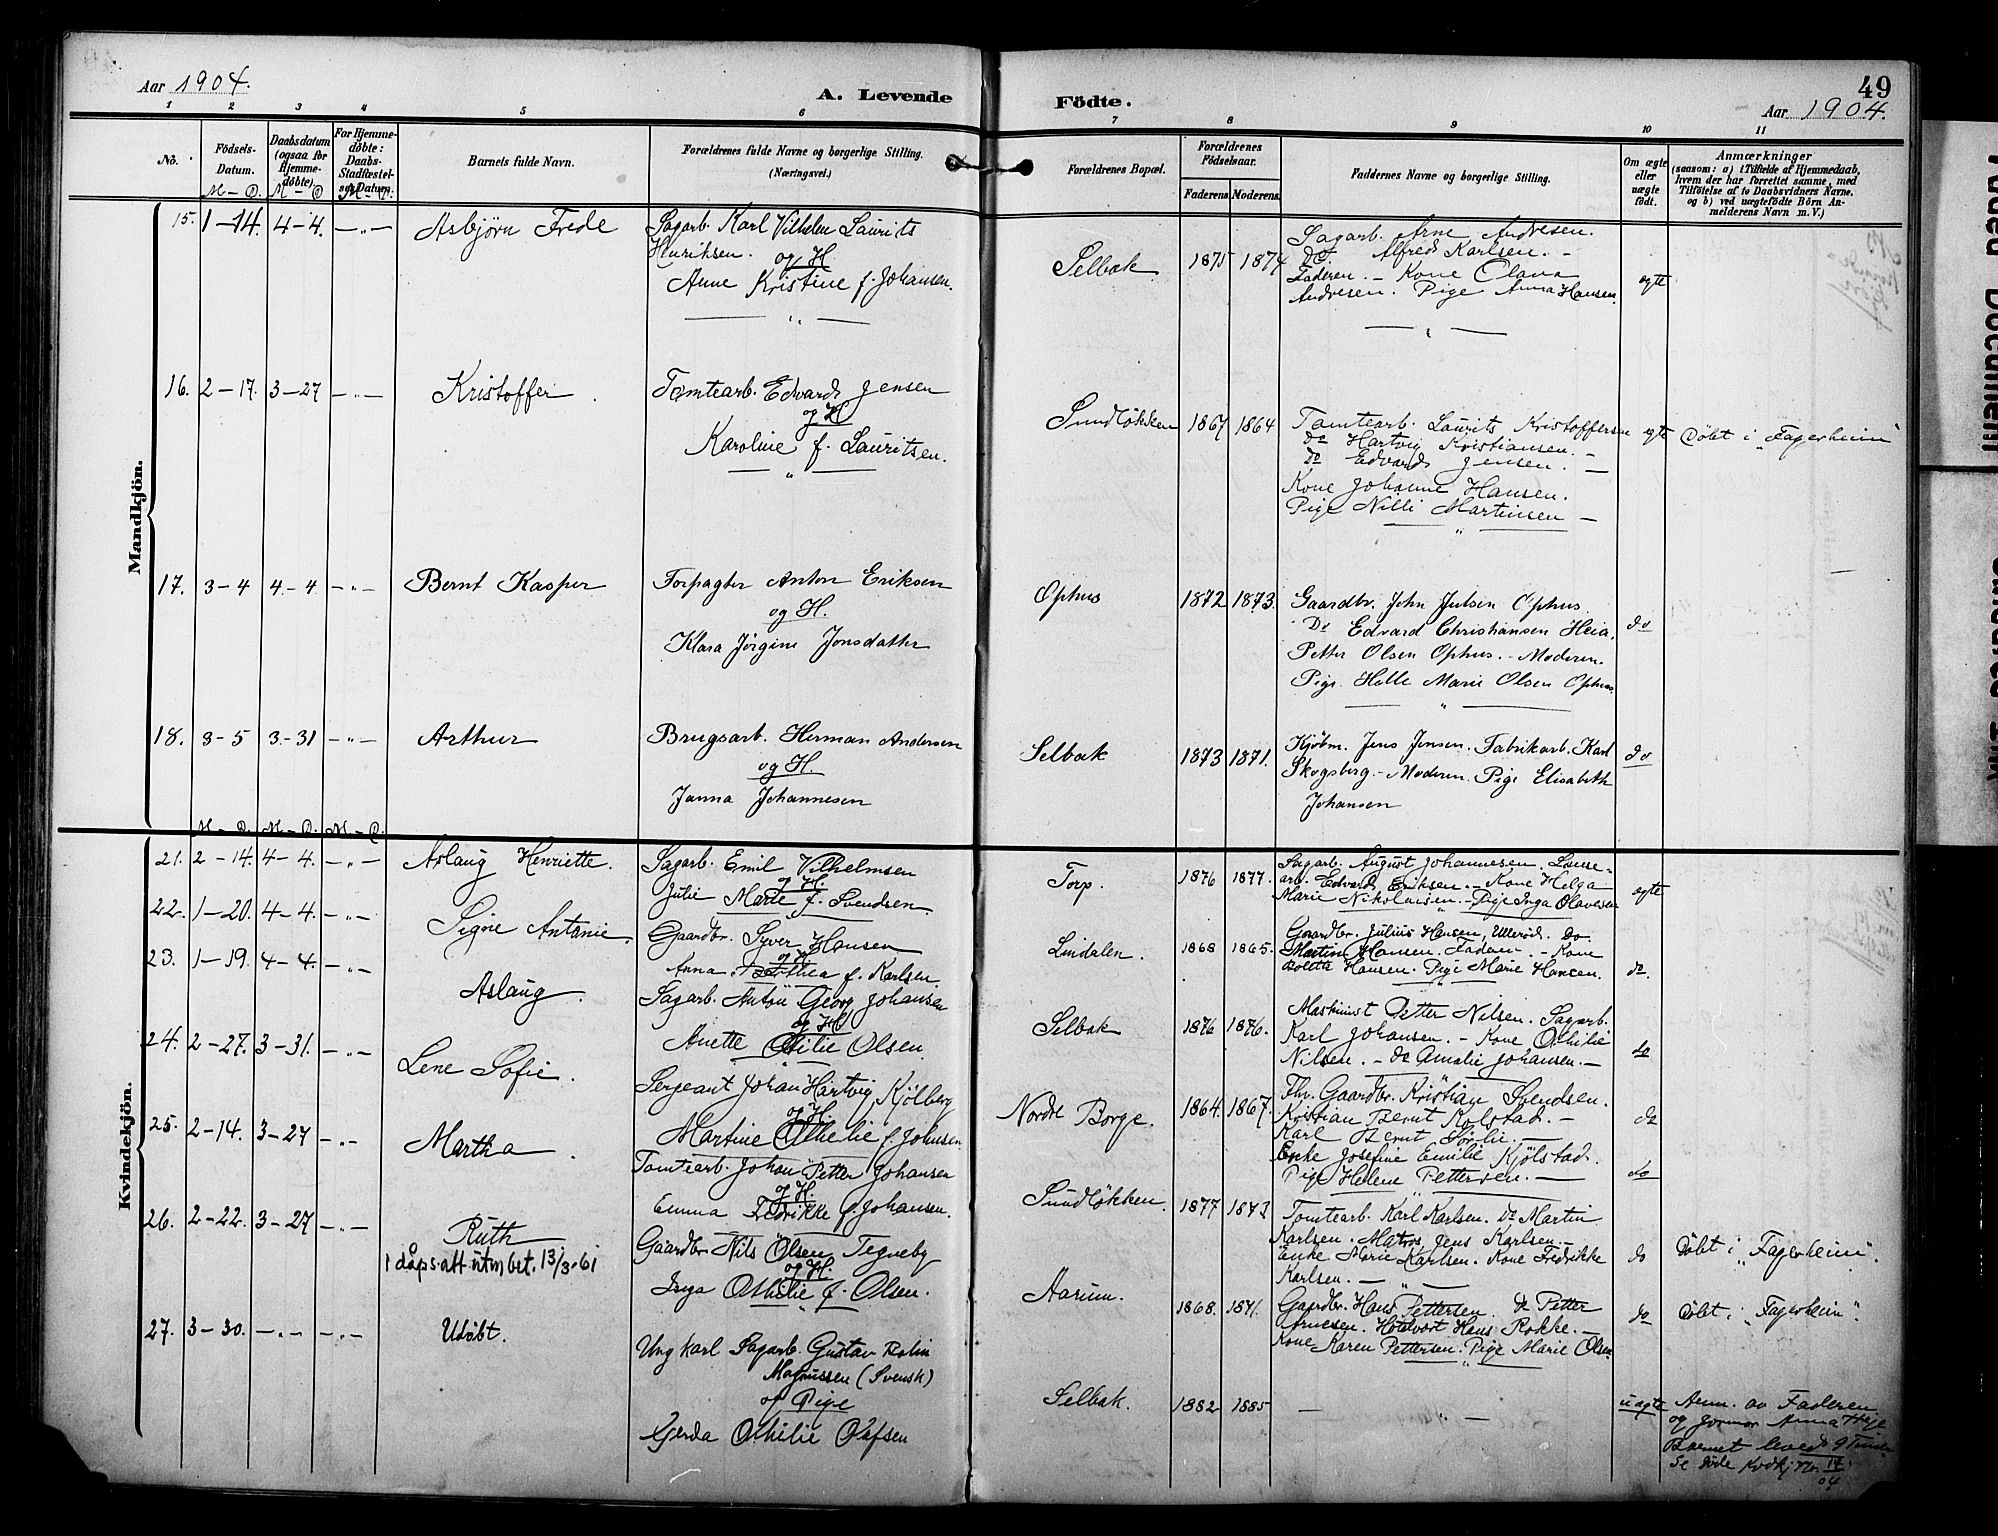 Aar 1904.
A. Levende
Födte.
49
Aar 1904.
1 2 3 4 5 6 7 8 9 10 11
No.
Födsels-
Datum.
M – D.
Daabsdatum
(ogsaa for
Hjemme-
døbte)
M – D
For Hjemme-
døbte:
Daabs-
Stadfæstel-
ses-Datum.
M – D.
Barnets fulde Navn.
Forældrenes fulde Navne og borgerlige Stilling.
(Næringsvei.)
Forældrenes Bopæl.
Forældrenes
Födselsaar.
Faderens. Moderens.
Faddernes Navne og borgerlige Stilling.
Om ægte
eller
uægte
født.
Anmærkninger
(saasom: a) i Tilfælde af Hjemmedaab,
hvem der har forrettet samme, med
Tilføielse af to Daabsvidners Navne,
og b) ved uægtefødte Börn An-
melderens Navn m. V.)
Mandkjön.
15. 1–14. 4–4. –„– Asbjørn Frede
Sagarb. Karl Vilhelm Laurits
Henriksen. og H.
Anne Kristine f. Johansen.
Selbak 1875 1874
Sagarb. Arne Andresen.
Do. Alfred Karlsen. –
Faderen. – Kone Olava
Andresen. Pige Anna Hansen.
ægte
16. 2–17. 3–27 –„– Kristoffer
Tomtearb. Edvard Jensen
og H
Karoline f. Lauritsen.
Sundløkken 1867 1864
Tomtearb. Laurits Kristoffersen
do Hartvig Kristiansen. –
do Edvard Jensen. –
Kone Johanne Hansen.
Pige Nilli Martinsen –
ægte
Døbt i „Fagerheim"
17. 3–4 4–4 –„– Bernt Kasper
Forpagter Anton Eriksen
og H.
Klara Jørgine Jonsdatter
Ophus 1872 1873.
Gaardbr. John Julsen Ophus.
Do Edvard Christiansen Heia.
Petter Olsen Ophus. – Moderen.
Pige Helle Marie Olsen Ophus
do
18. 3–5 3–31 –„– Arthur
Brugsarb. Herman Andersen
og H.
Janna Johannesen
Selbak 1873 1871.
Kjøbm. Jens Jensen. Fabrikarb. Karl
Skogsberg. – Moderen. Pige Elisabeth
Johansen
do
M – D. M – D. M – D.
Kvindekjön.
21. 2–14. 4–4. –„– Aslaug Henriette.
Sagarb. Emil Vilhelmsen
og H.
Julie Marie f. Svendsen.
Torp. 1876 1877.
Sagarb. August Johannesen. Lense-
arb. Edvard Eriksen. – Kone Helga
Marie Nikolaisen. – Pige Inga Olavesen
ægte
22. 1–20. 4–4. –„– Signe Antonie.
Gaardbr. Syver Hansen
og H.
Anna Dorthea f. Karlsen.
Lindalen. 1868 1865.
Gaardbr. Julius Hansen, Ullerød. Do.
Martin Hansen. Faderen. – Kone
Bolette Hansen. Pige Marie Hansen.
do.
23. 1–19. 4–4. –„– Aslaug.
Sagarb. Anton Georg Johansen
og H
Anette Othilie Olsen.
Selbak 1876 1876.
Maskinist Petter Nilsen. Sagarb.
Karl Johansen. – Kone Othilie
Nilsen. – do Amalie Johansen. –
do
24. 2–27. 3–31. –„– Lene Sofie.
Sergeant Johan Hartvig Kjølberg
og H.
Martine Othelie f. Johnsen
Nordre Borge. 1864. 1867.
Fhv. Gaardbr. Kristian Svendsen.
Kristian Bernt Kolstad. –
Karl Bernt Sørlie. –
Enke Josefine Emilie Kjølstad.
Pige Helene Pettersen. –
do
25. 2–14. 3–27 –„– Martha.
Tomtearb. Johan Petter Johansen
og H.
Emma Fredrikke f. Johansen.
Sundløkken. 1877 1873
Tomtearb. Karl Karlsen. do Martin
Karlsen. Matros Jens Karlsen. –
Enke Marie Karlsen. Kone Fredrikke
Karlsen. –
do
do
Døbt i „Fagerheim".
26. 2–22. 3–27 –„– Ruth
1 dåpsatt utm bet. 13/3-61
Gaardbr. Nils Olsen Tegneby
og H.
Inga Othilie f. Olsen.
Aarum. 1868. 1871.
Gaardbr. Hans Pettersen. do Petter
Arnesen. Hotelvært Hans Rokke. –
Kone Karen Pettersen. Pige Marie Olsen.
do
Døbt i „Fagerheim".
27. 3–30. –„– –„– Udøbt.
Ungkarl Sagarb. Gustav Bolin
Magnussen (Svensk)
og Pige
Gerda Othilie Olafsen
Selbak. 1882 1885
uægte
Anm. av Faderen
og Jormor Anna Heje
Barnet levede 9 Timer
Se døde Kvdkj No 17/04